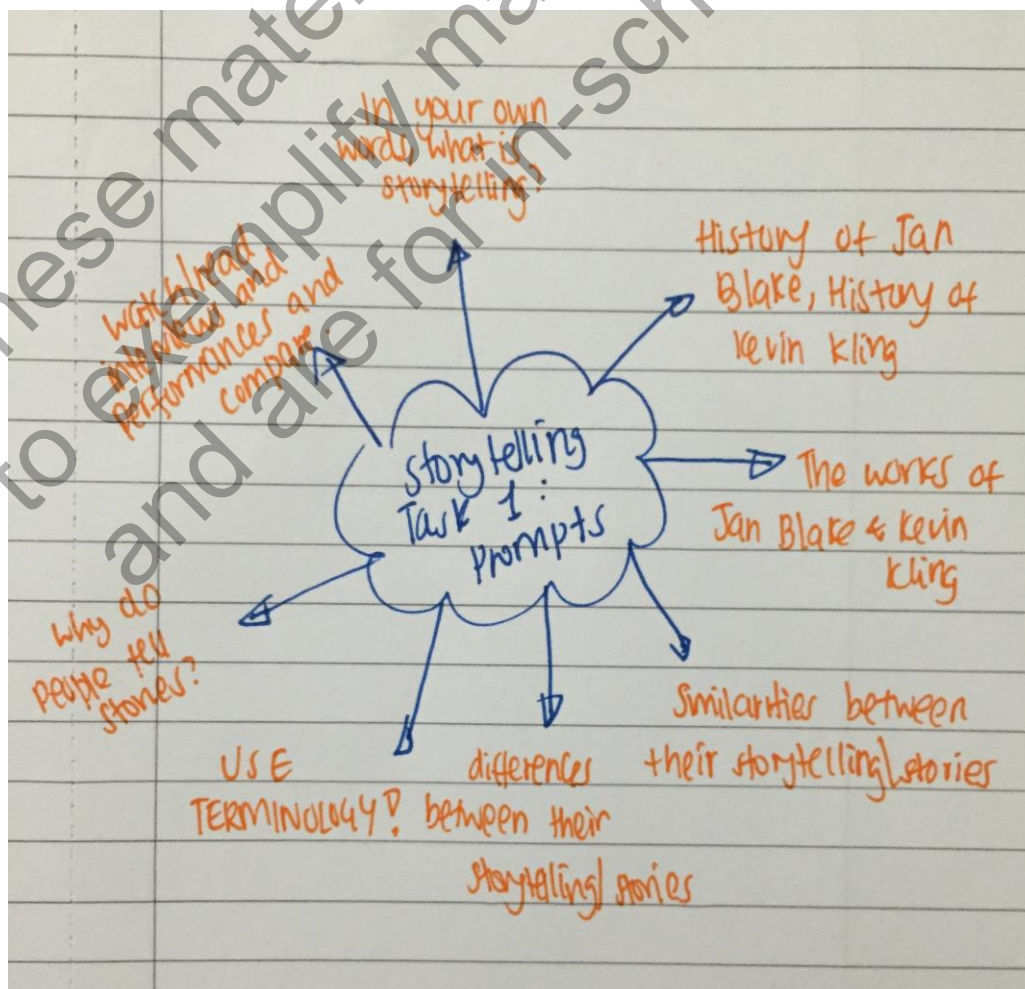 these mater
to exemplify ma
and are for in-sch
In your own
words, what is
storytelling?
History of Jan
Blake, History of
Kevin Kling
The works of
Jan Blake & Kevin
Kling
Similarities between
their storytelling/stories
differences
between their
storytelling/stories
USE
TERMINOLOGY!
why do
people tell
stories?
watch/read
interviews and
performances and
compare.
storytelling
Task 1:
Prompts